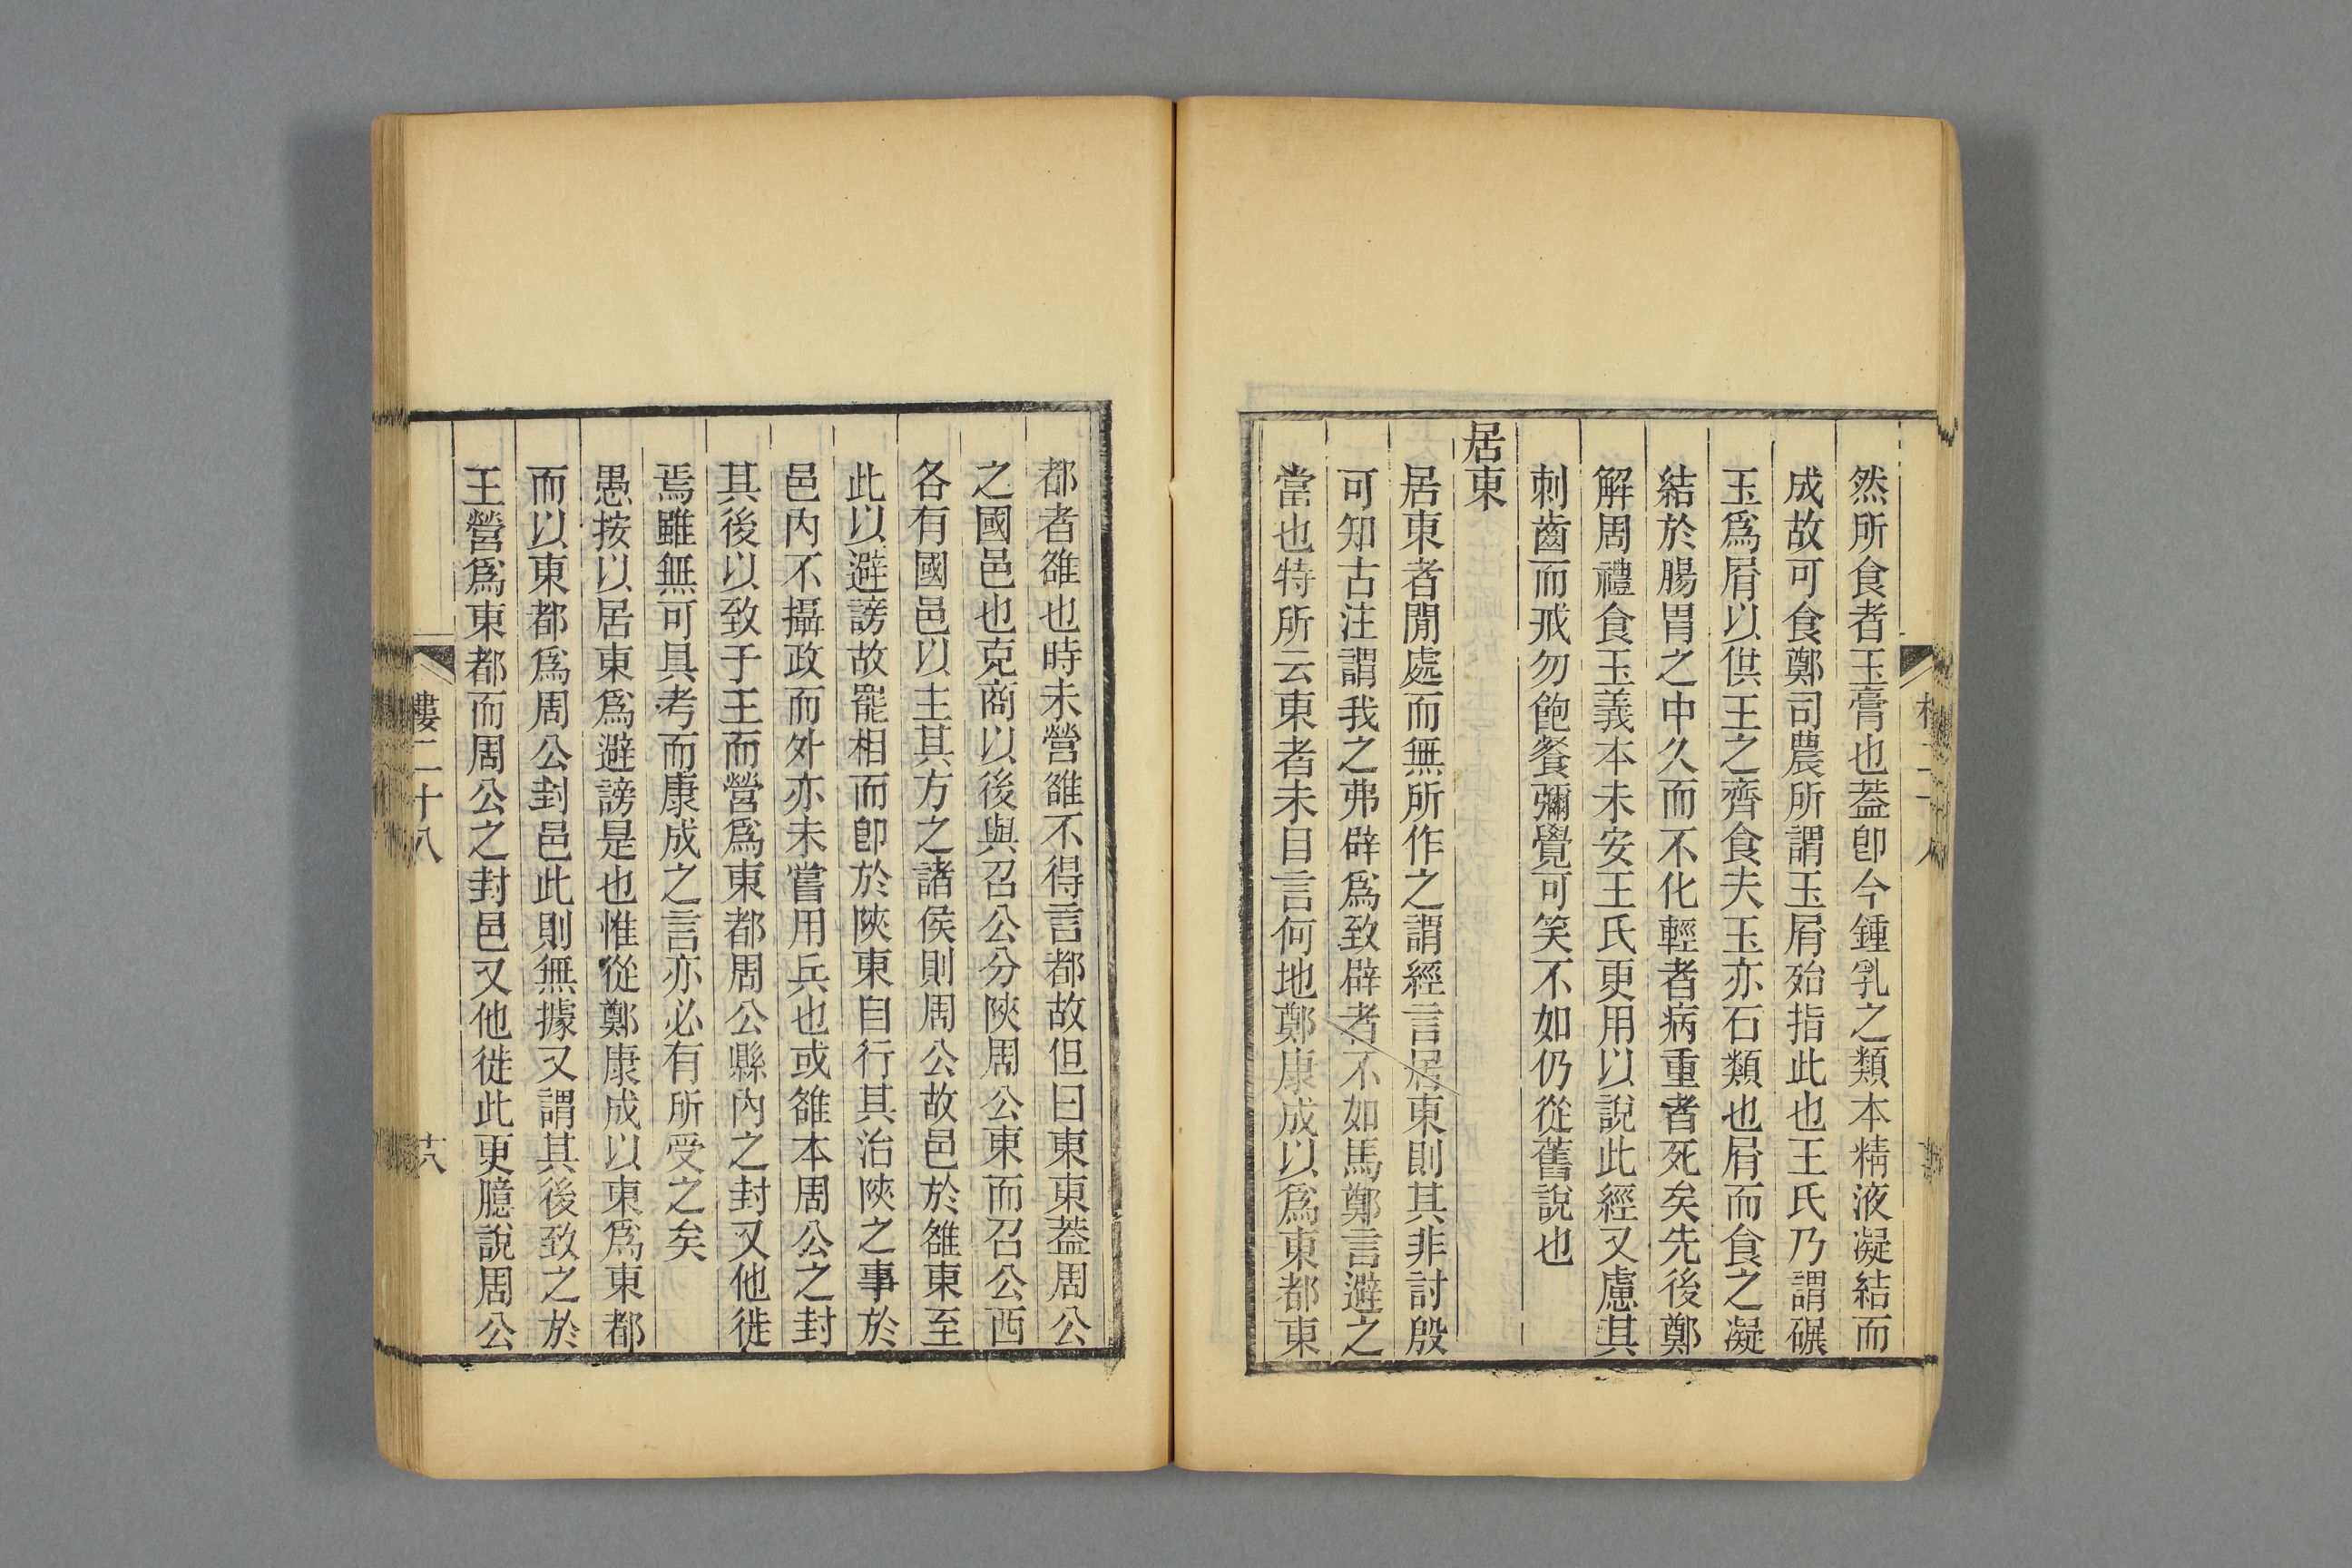 然所食者玉膏也葢卽今鍾乳之類本精液凝結而
成故可食鄭司農所謂玉屑殆指此也王氏乃謂碾
玉爲屑以供王之齊食夫玉亦石類也屑而食之凝
結於腸胃之中久而不化輕者病重者死矣先後鄭
解周禮食玉義本未安王氏更用以說此經又慮其
刺齒而戒勿飽餐彌覺可笑不如仍從舊說也
居東
居東者閒處而無所作之謂經言居東則其非討殷
可知古注謂我之弗辟爲致辟者不如馬鄭言避之
當也特所云東者未目言何地鄭康成以爲東都東
都者雒也時未營雒不得言都故但曰東東葢周公
之國邑也克商以後與召公分陝周公東而召公西
各有國邑以主其方之諸侯則周公故邑於雒東至
此以避謗故罷相而卽於陝東自行其治陝之事於
邑內不攝政而外亦未嘗用兵也或雒本周公之封
其後以致于王而營爲東都周公縣內之封又他徙
焉雖無可具考而康成之言亦必有所受之矣
愚按以居東爲避謗是也惟從鄭康成以東爲東都
而以東都爲周公封邑此則無據又謂其後致之於
王營爲東都而周公之封邑又他徙此更臆說周公
樓二十八
十八